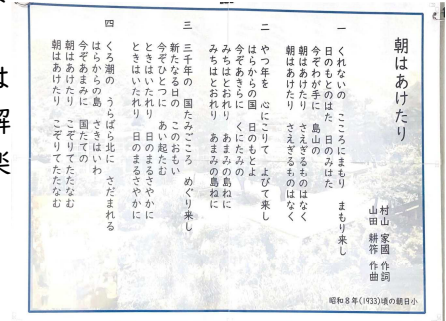 朝はあけたり
村山 家國 作詞
山田 耕筰 作曲
一 くれないの こころにまもり まもり来し
日のもとのはた 日のみはた
今ぞわが手に 島山の
朝はあけたり さえぎるものはなく
朝はあけたり さえぎるものはなく
二 やつ年を 心にこりて よびて来し
はらからの国 日のもとよ
今ぞあきらに くにたみの
みちはとおれり あまみの島ねに
みちはとおれり あまみの島ねに
三 三千年の 国たみごころ めぐり来し
新たなる日の このおもい
今ぞひとつに あい起たむ
ときはいたれり 日のまるさやかに
ときはいたれり 日のまるさやかに
四 くろ潮の うらばら北に さだまれる
はらからの島 さきはいわ
今ぞあまみに 国たての
朝はあけたり こぞりてたたなむ
朝はあけたり こぞりてたたなむ
昭和8年(1933)頃の朝日小
は
解
楽